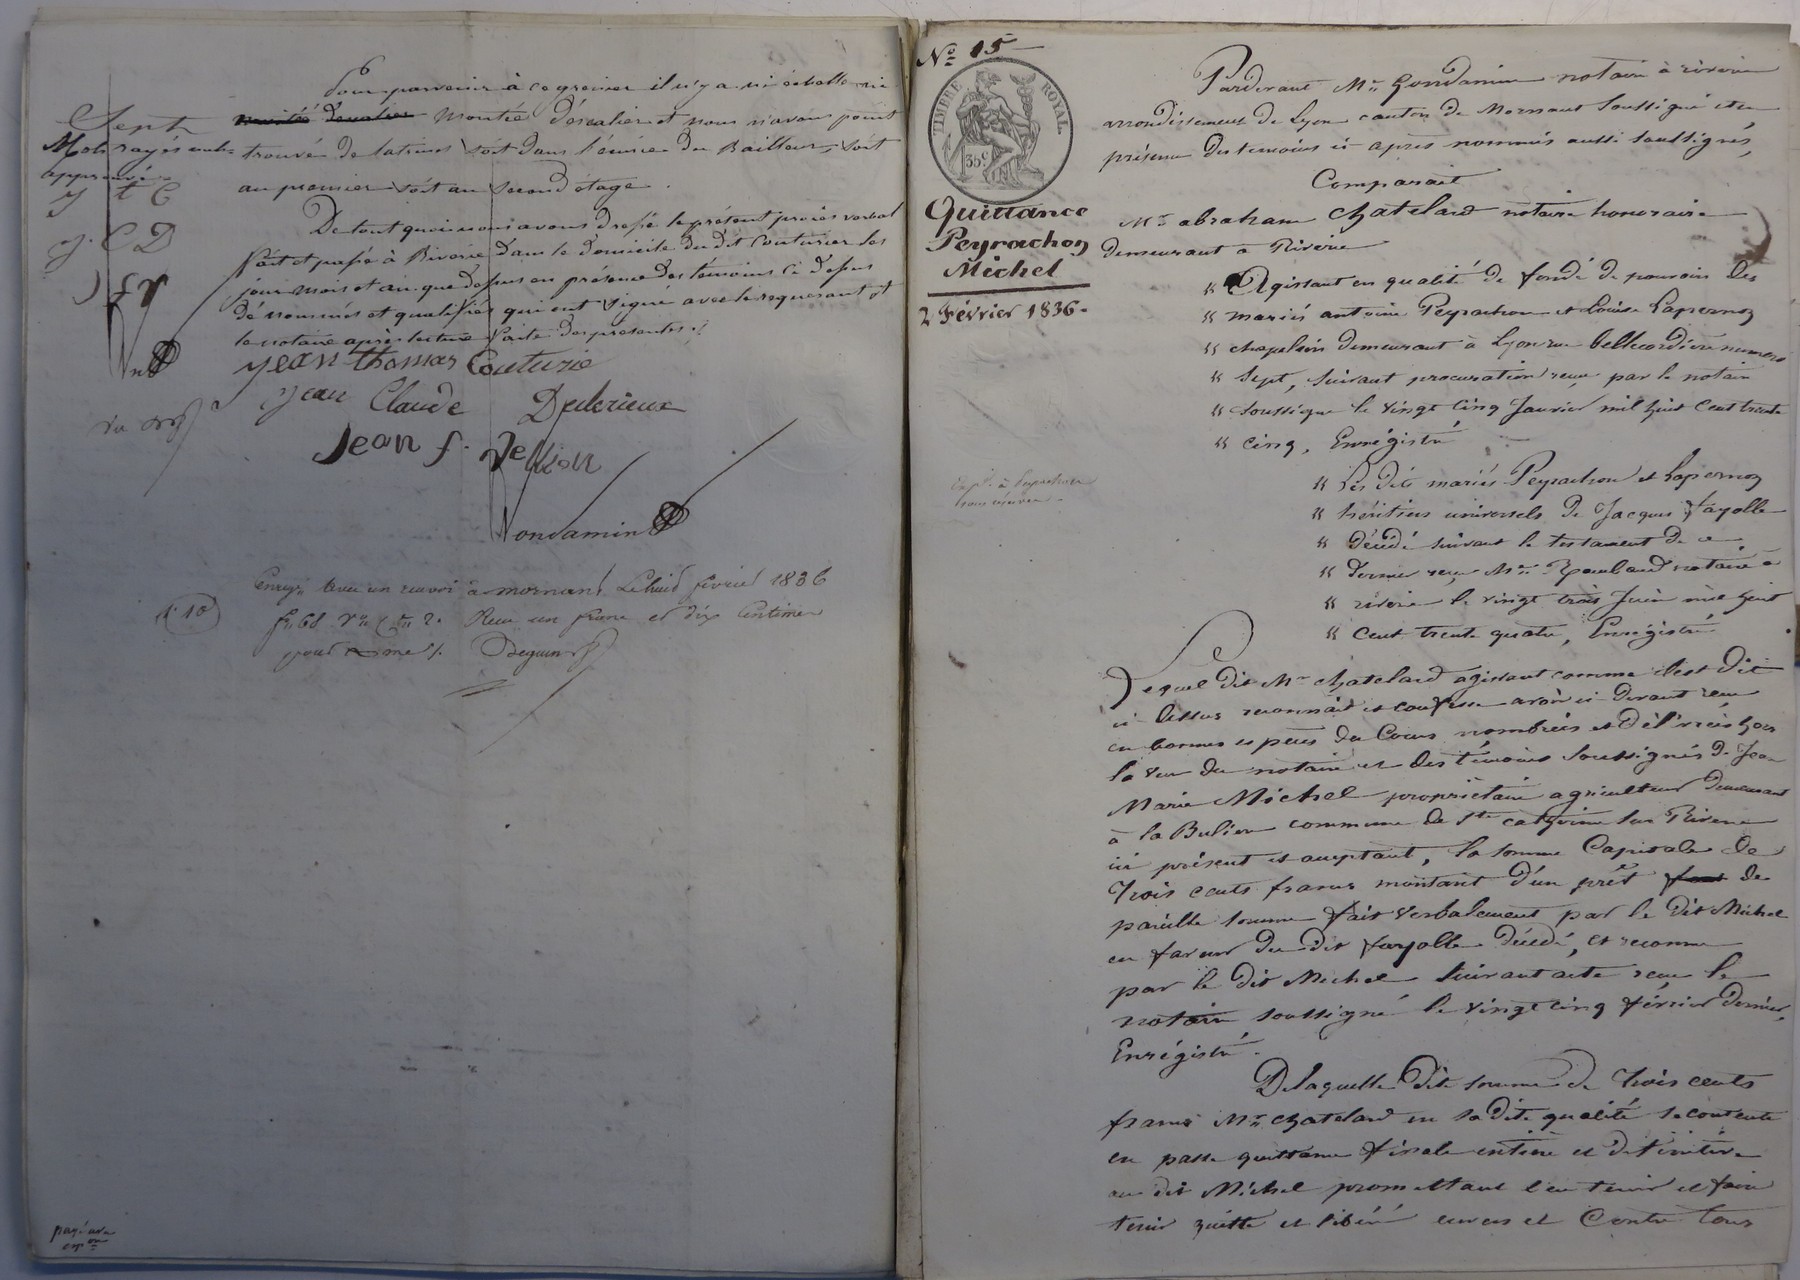 Pour parvenir à ce grenier il n'y a ni échelle ni
montée d'escalier montée d'escalier et nous n'avons point
trouvé de latrines soit dans l'écurie du Bailleur, soit
au premier soit au second étage.
De tout quoi nous avons dressé le présent procès verbal
fait et passé à Riverie dans le domicile du dit Couturier les
jour mois et an que dessus en présence des témoins ci dessus
dénommés et qualifiés qui ont signé avec le requerant et
le notaire après lecture faite des présentes./.
Sept
Mots rayés nuls
approuvé
J t C
J. C D
J f V
jean thomas Couturie
jean Claude Delerieux
Jean f. Vellion
Gondamin
1. 10
Enregt. avec un renvoi à mornant, Le huit février 1836
fo. 68 Vo. Ce. 2. Reçu un franc et dix centimes
pour Xme /. Deguin
payé
No. 15
TIMBRE ROYAL
35 c
Quittance
Peyrachon
Michel
2 Février 1836.
Pardevant Me. Gondamin notaire à riverie
arrondissement de Lyon canton de Mornant soussigné et en
présence des temoins ci après nommés aussi soussignés,
Comparait
Mr. abraham Chatelard notaire honoraire
demeurant à Riverie
" Agissant en qualité de fondé de pouvoir des
" mariés antoine Peyrachon et Louise Lapernoz
" chapelain demeurant à Lyon rue bellecordière numero
" sept, suivant procuration reçue par le notaire
" soussigné le vingt cinq Janvier mil huit cent trente
" cinq, Enrégistré
" Les dits mariés Peyrachon et Lapernoz
" héritiers universels de Jacques Fayolle
" décédé suivant le testament de ce
" dernier reçu Me. Roulaud notaire à
" riverie le vingt trois Juin mil huit
" cent trente quatre, Enrégistré
Lequel dit Mr. Chatelard agissant comme il est dit
ci dessus reconnait et confesse avoir ci devant reçu
en bonnes espèces du Cours nombrées et délivrées hors
la vue du notaire et des témoins soussignés de Jean
Marie Michel propriétaire agriculteur demeurant
à la commune de Ste. catherine sur Riverie
ici présent et acceptant, la somme Capitale de
Trois cents francs montant d'un prêt fait de
pareille somme fait verbalement par le dit Michel
en faveur du dit fayolle décédé, et reconnu
par le dit Michel suivant acte reçu le
notaire soussigné le vingt cinq février dernier,
Enrégistré.
De laquelle dite somme de Trois cents
francs Mr. Chatelard en sa dite qualité se contente
en passe quittance finale entière et définitive
au dit Michel promettant l'en tenir et faire
tenir quitte et libéré envers et Contre tous